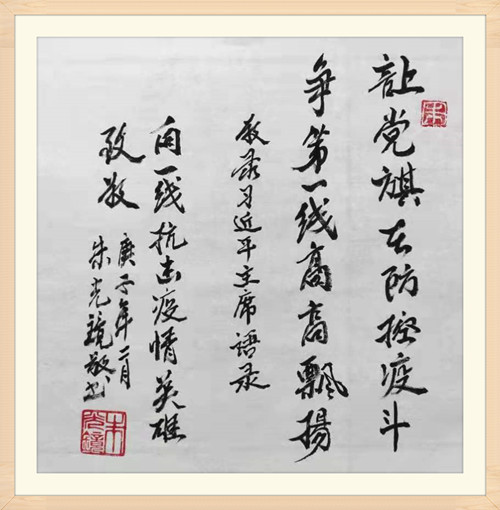 让党旗在防控疫斗
争第一线高高飄揚
敬录习近平主席语录
向一线抗击疫情英雄
致敬
庚子年二月
朱光镜敬书
朱